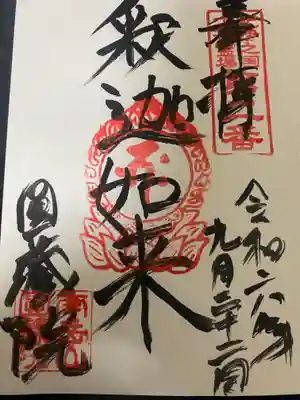 奉拝
釈迦如来
令和六年
九月二十二日
圓蔵院